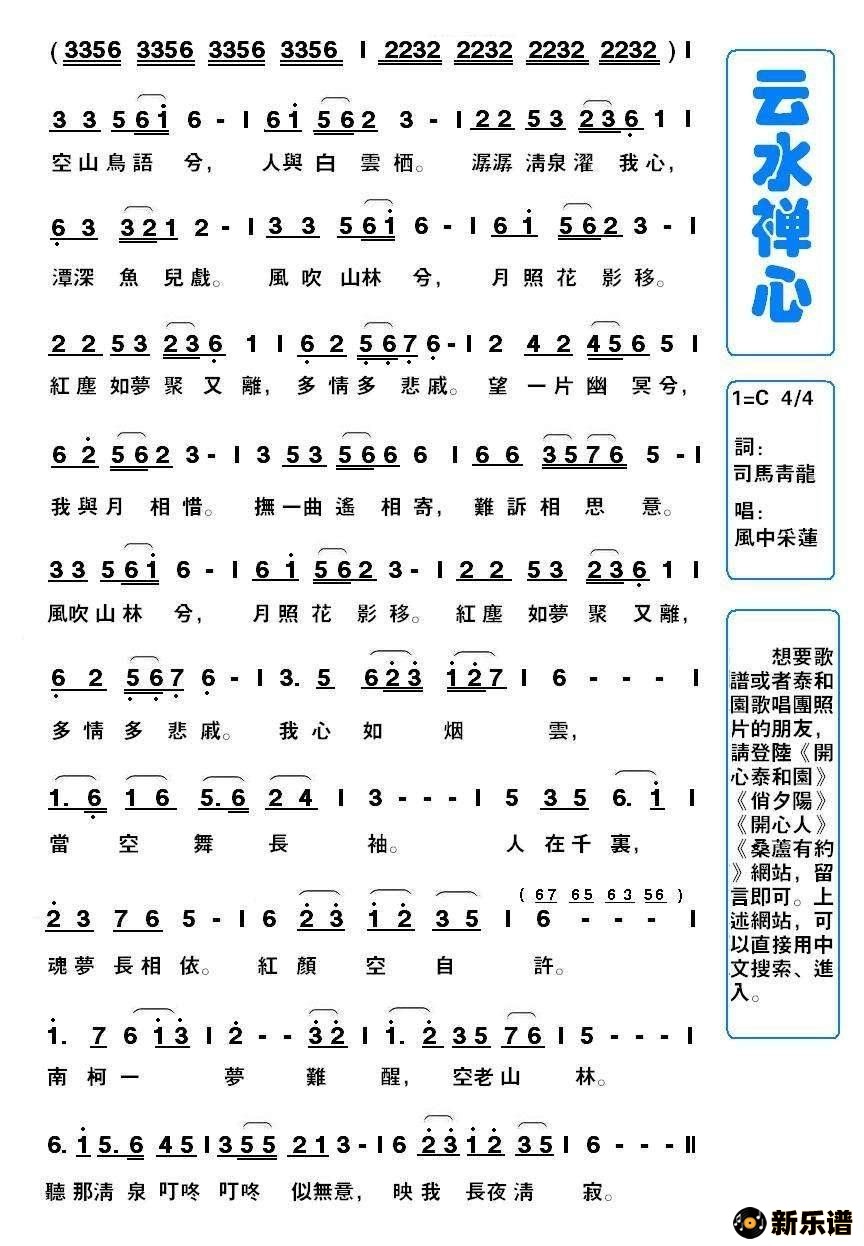 (3356 3356 3356 3356 | 2232 2232 2232 2232)|
3 3 5 6 i 6 - | 6 i 5 6 2 3 - | 2 2 5 3 2 3 6 1 |
空山鳥語 兮， 人與白雲栖。 潺潺清泉濯我心，
6 3 3 2 1 2 - | 3 3 5 6 i 6 - | 6 i 5 6 2 3 - |
潭深魚兒戲。 風吹山林兮， 月照花影移。
2 2 5 3 2 3 6 1 | 6 2 5 6 7 6 - | 2 4 2 4 5 6 5 |
紅塵如夢聚又離，多情多悲戚。望一片幽冥兮，
6 2 5 6 2 3 - | 3 5 3 5 6 6 6 | 6 6 3 5 7 6 5 - |
我與月相惜。 撫一曲遙相寄，難訴相思意。
3 3 5 6 i 6 - | 6 i 5 6 2 3 - | 2 2 5 3 2 3 6 1 |
風吹山林兮， 月照花影移。紅塵如夢聚又離，
6 2 5 6 7 6 - | 3. 5 6 2 3 | i 2 7 | 6 - - - |
多情多悲戚。 我心如烟雲，
1. 6 1 6 5. 6 2 4 | 3 - - - | 5 3 5 6. i |
當空舞長袖。 人在千裏，
(67 65 63 56)
2 3 7 6 5 - | 6 2 3 i 2 3 5 | 6 - - - |
魂夢長相依。紅顏空自許。
i. 7 6 i 3 | 2 - - 3 2 | i. 2 3 5 7 6 | 5 - - - |
南柯一夢難醒，空老山林。
6. i 5. 6 4 5 | 3 5 5 2 1 3 - | 6 2 3 i 2 3 5 | 6 - - - ||
聽那清泉叮咚叮咚似無意，映我長夜清寂。
云水禅心
1=C 4/4
詞：
司馬青龍
唱：
風中采蓮
想要歌
譜或者泰和
園歌唱團照
片的朋友，
請登陸《開
心泰和園》
《俏夕陽》
《開心人》
《桑蘆有約
》網站，留
言即可。上
述網站，可
以直接用中
文搜索、進
入。
新乐谱